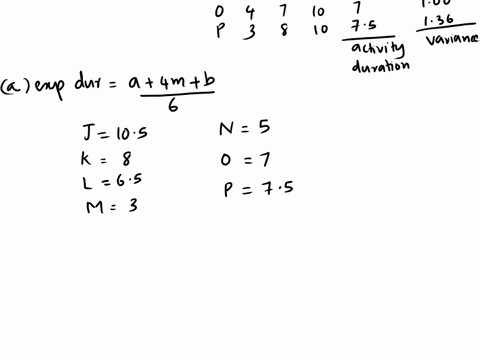 O 4 7 10 7 1.00
P 3 8 10 7.5 1.36
activity duration variance
(a) exp dur = a + 4m + b / 6
J = 10.5 N = 5
K = 8 O = 7
L = 6.5 P = 7.5
M = 3